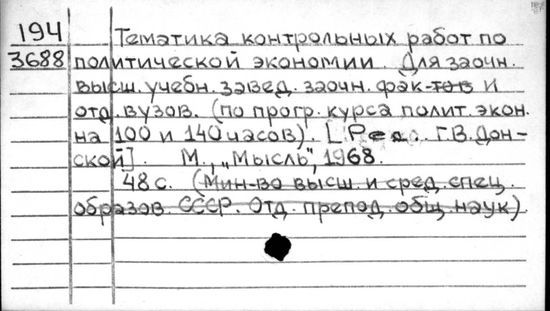 194
3688
Тематика контрольных работ по
политической экономии. Для заочн.
высш. учебн. завед. заочн. фак-тов и
отд. вузов. (по прогр. курса полит. экон.
на 100 и 140 часов). [Ред. Г.В. Дон-
ской]. М., „Мысль", 1968.
48 с. (Мин-во высш. и сред. спец.
образов. СССР. Отд. препод. общ. наук)